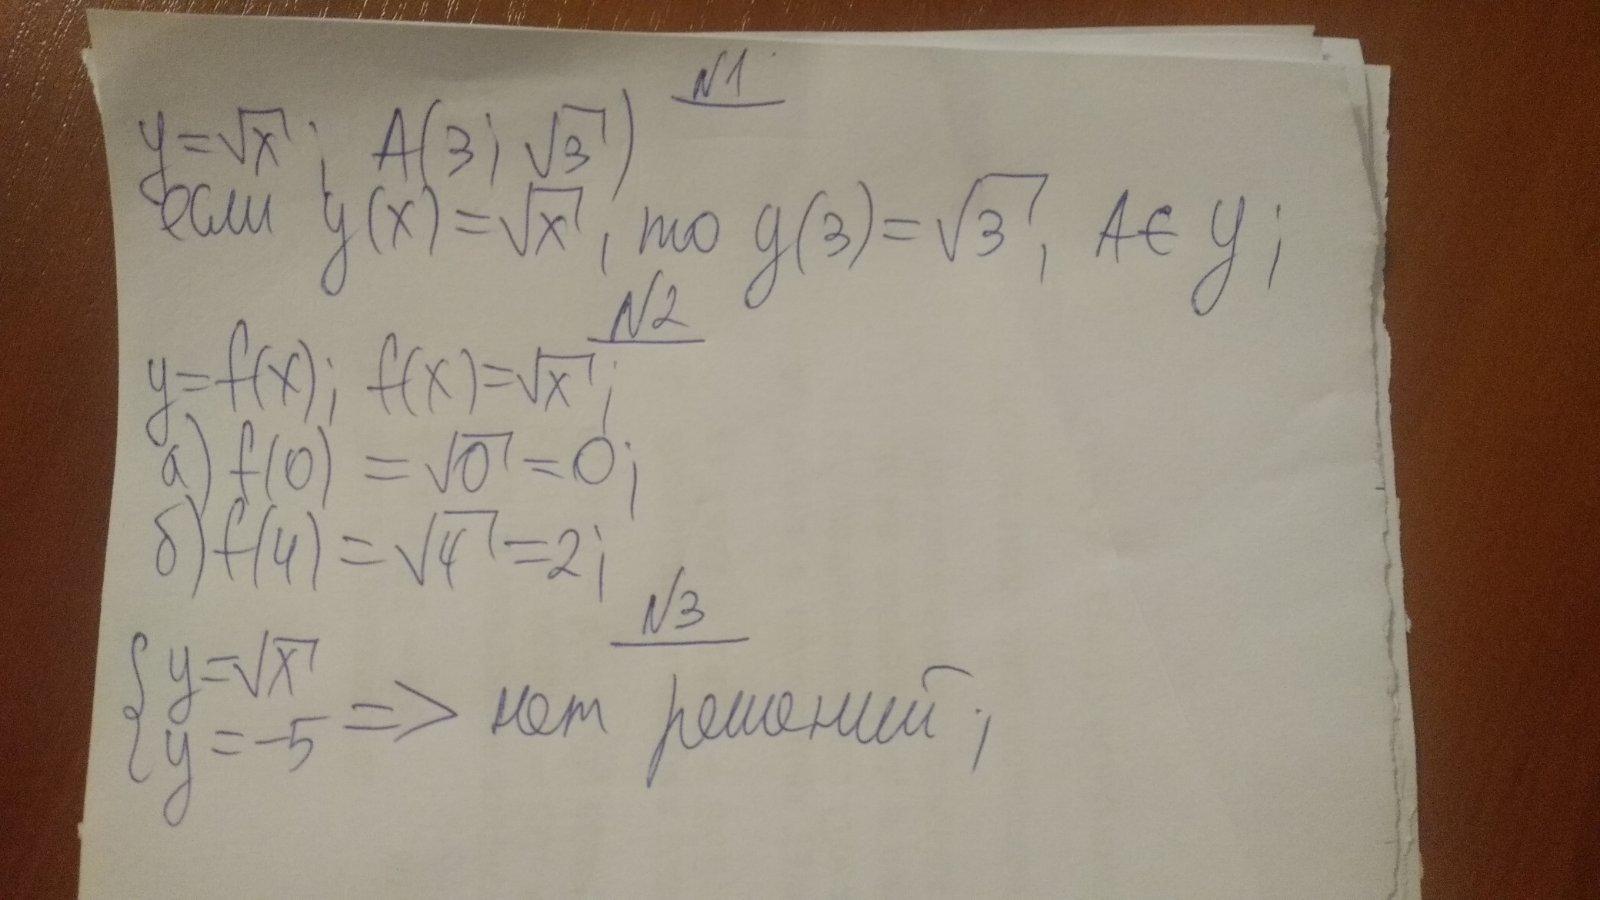 N1
y=√x; A(3; √3)
если y(x)=√x, то y(3)=√3, A∈y;
N2
y=f(x); f(x)=√x;
а) f(0) =√0=0;
б) f(4) =√4=2;
N3
{ y=√x
y=-5 => нет решений;